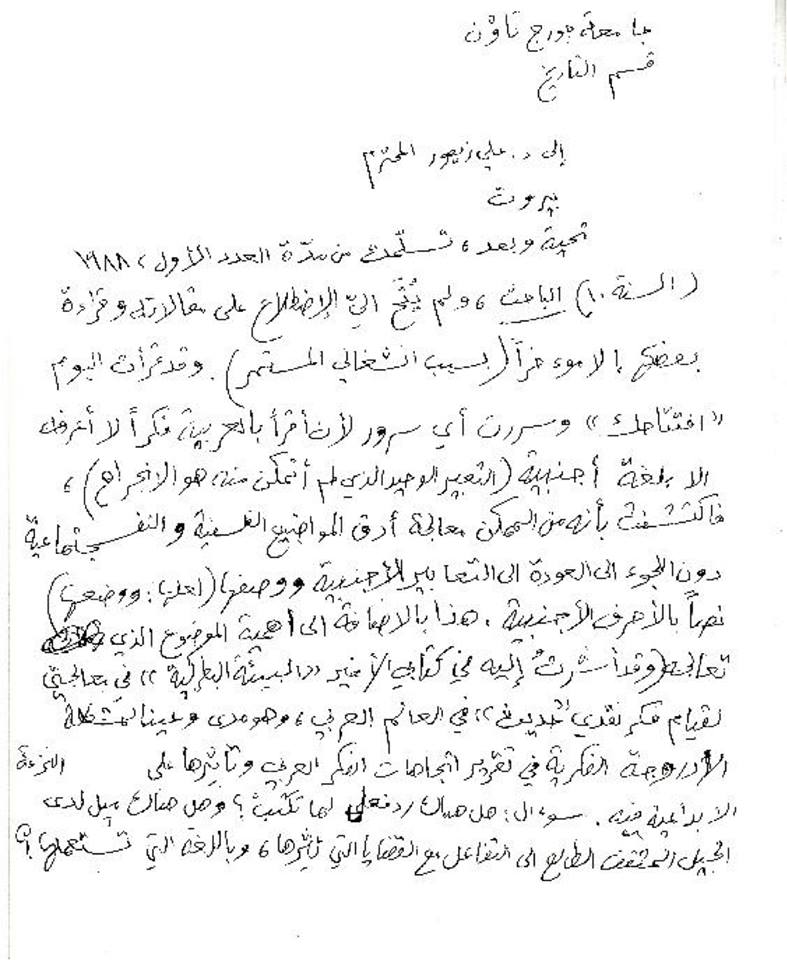 جامعة جورج تاون
قسم التاريخ
إلى د. علي زيعور المحترم
بيروت
تحية وبعد، تسلّمت من مدّة العدد الأول، ١٩٨٨
(السنة ١٠) الباحث، ولم يُتَح اليّ الإضطلاع على مقالاته وقراءة
بعضها إلا موءخراً (بسبب انشغالي المستمر). وقد قرأت اليوم
"افتتاحك" وسررت أي سرور لأن أقرأ بالعربية فكراً لا أعرفه
الا بلغة أجنبية (التعبير الوحيد الذي لم أتمكن منه، هو الانجراح)،
فاكتشفت بأنه من الممكن معالجة أدق المواضيع الفلسفية والنفسجتماعية
دون اللجوء الى العودة الى التعابير الأجنبية ووصفها (لعلها: ووضعها)
نصاً بالأحرف الأجنبية. هذا بالاضافة الى أهمية الموضوع الذي
تعالجه (وقد أشرتُ إليه في كتابي الأخير "البيئة البطركية" في معالجتي
لقيام فكر نقدي "حديث" في العالم العربي، وهو مدى وعينا لمشكلة
الازدوجة الفكرية في تقرير اتجاهات الفكر العربي وتأثيرها على النزعة
الابداعية فيه. سوءال: هل هناك ردفعل لما تكتب؟ وهل هناك ميل لدى
الجيل المثقف الطالع الى التفاعل مع القضايا التي تثيرها، وباللغة التي تستعملها؟